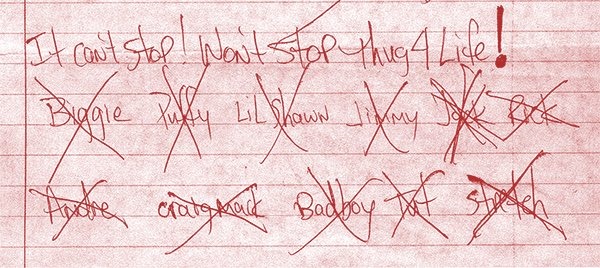 It can't stop! Won't Stop Thug 4 Life!
Biggie Puffy Lil Shawn Jimmy Jack
Andre craig mack Bad boy Tut stretch